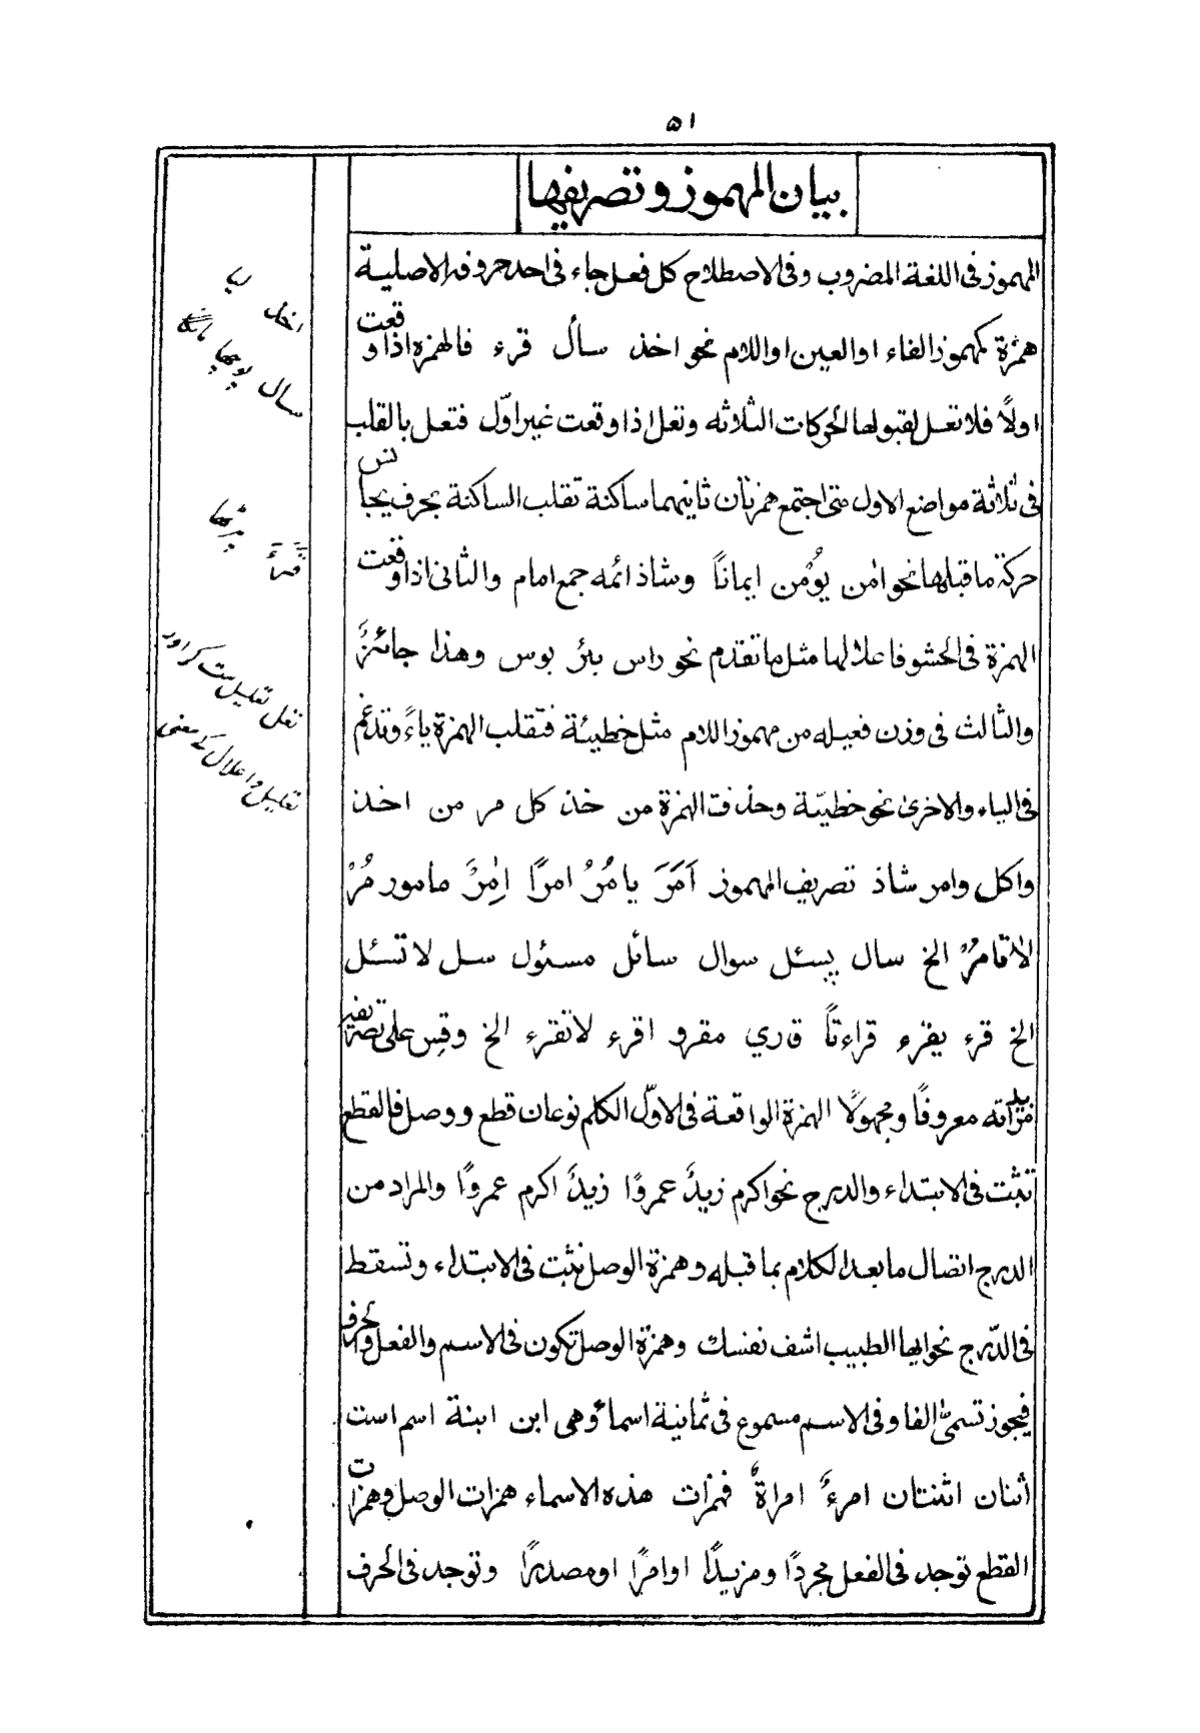 ۵۱
بيان المهموز وتصريفها
المهموز فى اللغة المضروب وفى الاصطلاح كل فعل جاء فى احد حروفه الاصلية
همزة كمهموز الفاء او العين او اللام نحو اخذ سأل قرء فالهمزة اذا وقعت
اولاً فلا تعل لقبولها الحركات الثلاثه وتعل اذا وقعت غير اوّل فتعل بالقلب
فى ثلاثة مواضع الاول متى اجتمع همزتان ثانيهما ساكنة تقلب الساكنة بحرف يجانس
حركة ما قبلها نحو اٰمن يُؤمن ايماناً وشاذ ائمه جمع امام والثانى اذا وقعت
الهمزة فى الحشو فاعلالها مثل ما تقدم نحو راس بئر بوس وهذا جائزٌ
والثالث فى وزن فعيله من مهموز اللام مثل خطيئة فتقلب الهمزة ياءً وتدغم
فى الياء والاخرىٰ نحو خطيّة وحذفت الهمزة من خذ كل مر من اخذ
واكل وامر شاذ تصريف المهموز اَمَرَ يامُرُ امرًا اٰمِرٌ مامور مُرْ
لاتامرْ الخ سال يسئل سوال سائل مسئول سل لا تسئل
الخ قرء يقرء قراءتاً قاري مقرو اقرء لا تقرء الخ وقس على تصريفه
مزيداته معروفًا ومجهولًا الهمزة الواقعة فى الاوّل الكلم نوعان قطع ووصل فالقطع
تثبت فى الابتداء والدرج نحو اكرم زيدٌ عمروًا زيدٌ اكرم عمروًا والمراد من
الدرج اتصال ما بعد الكلام بما قبله وهمزة الوصل تثبت فى الابتداء وتسقط
فى الدّرج نحو ايها الطبيب اشف نفسك وهمزة الوصل تكون فى الاسم والفعل والحرف
فيجوز تسمىّ الفا وفى الاسم مسموع فى ثمانية اسماءٍ وهى ابن ابنة اسم است
اثنان اثنتان امرءٌ امراةٌ فهمزات هذه الاسماء همزات الوصل وهمزات
القطع توجد فى الفعل مجردًا ومزيدًا اوامرًا اومصدرًا وتوجد فى الحرف
اخذ ليا
سال پوچها مانگا
قَرَءَ پڑها
تعل تعليل مت كر اور
تعليل و اعلال كے معنى